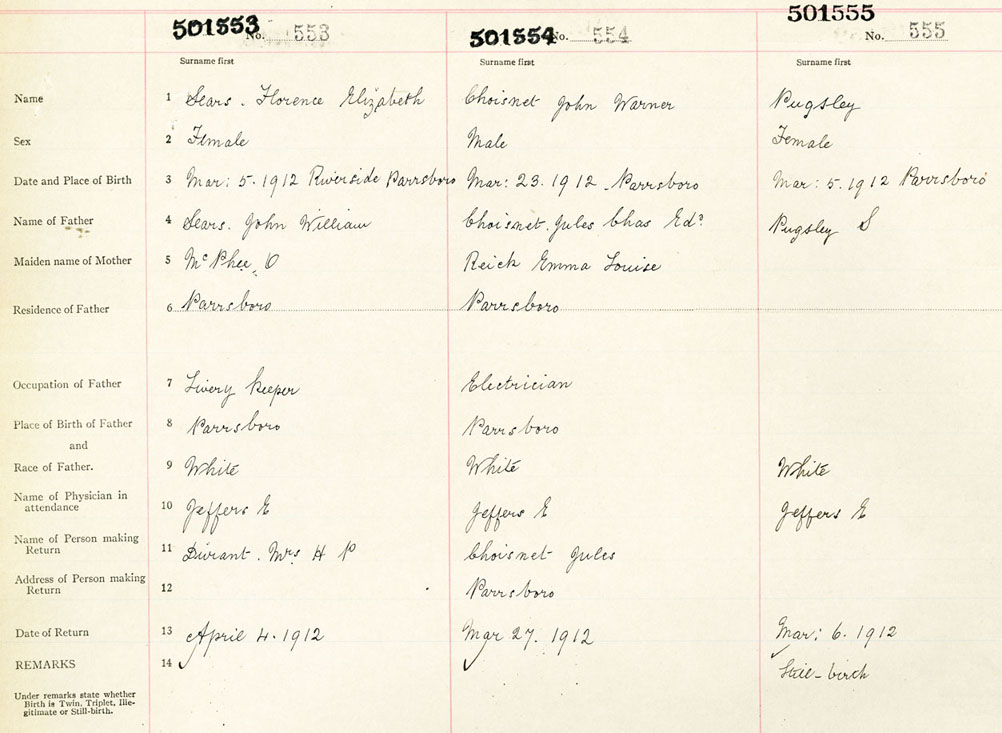 501553 No. 553 501554 No. 554 501555 No. 555
Surname first Surname first Surname first
Name 1 Sears. Florence Elizabeth Choisnet John Warner Pugsley
Sex 2 Female Male Female
Date and Place of Birth 3 Mar: 5. 1912 Riverside Parrsboro Mar: 23. 1912 Parrsboro Mar: 5. 1912 Parrsboro
Name of Father 4 Sears. John William Choisnet. Jules Chas Edd Pugsley S
Maiden name of Mother 5 McPhee, O Reick Emma Louise
Residence of Father 6 Parrsboro Parrsboro
Occupation of Father 7 Livery Keeper Electrician
Place of Birth of Father 8 Parrsboro Parrsboro
and
Race of Father. 9 White White White
Name of Physician in
attendance 10 Jeffers E Jeffers E Jeffers E
Name of Person making
Return 11 Durant. Mrs H P Choisnet Jules
Address of Person making
Return 12 Parrsboro
Date of Return 13 April 4. 1912 Mar 27. 1912 Mar: 6. 1912
REMARKS 14 Still-birth
Under remarks state whether
Birth is Twin, Triplet, Ille-
gitimate or Still-birth.